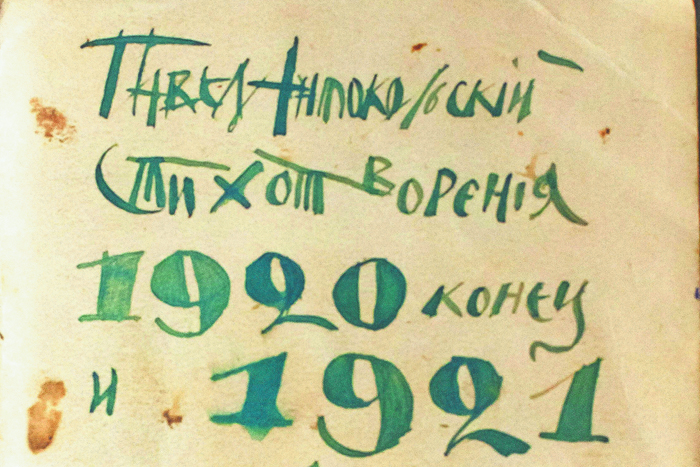 Павел Антокольскій
Стихотворенія
1920 конец
и 1921